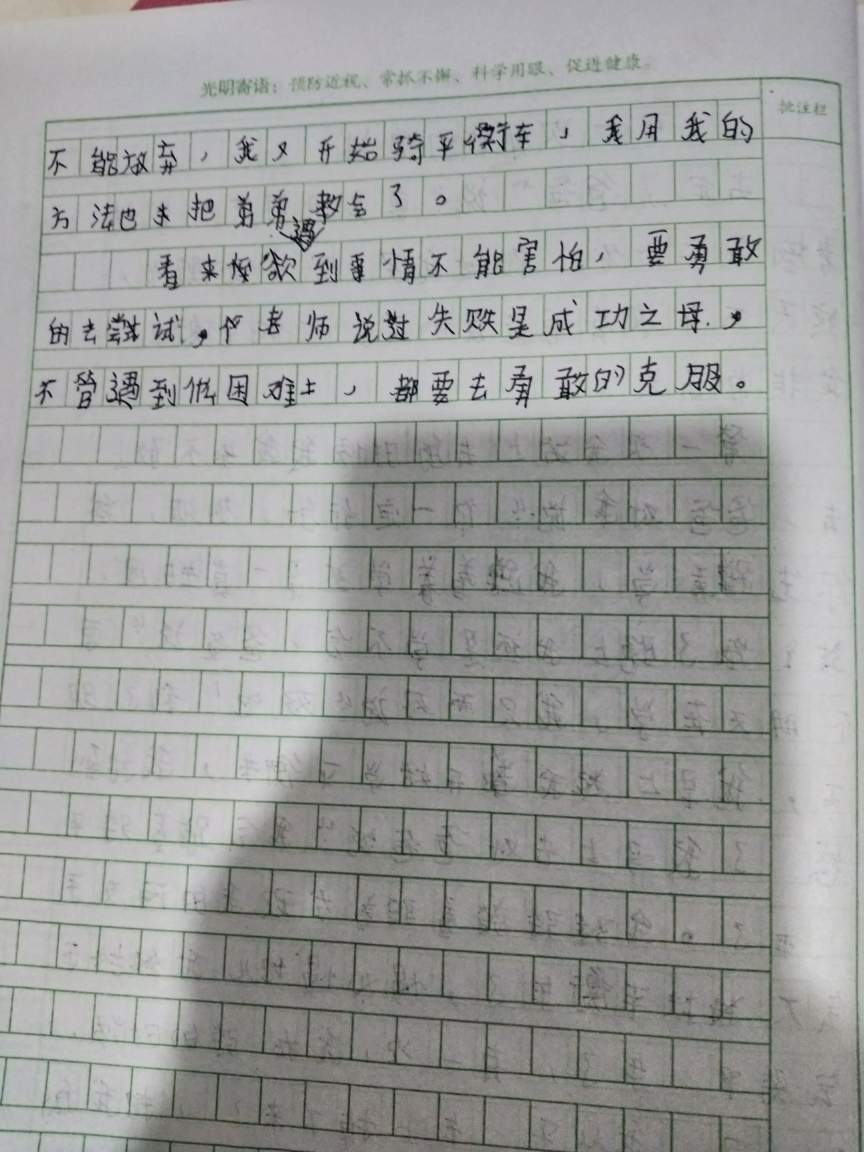 光明寄语：预防近视、常抓不懈、科学用眼、促进健康。
批注栏
不能放弃，我又开始骑平衡车，我用我的
方法也来把勇勇教会了。
看来做遇到事情不能害怕，要勇敢
的去尝试，老师说过失败是成功之母，
不管遇到困难，都要去勇敢的克服。